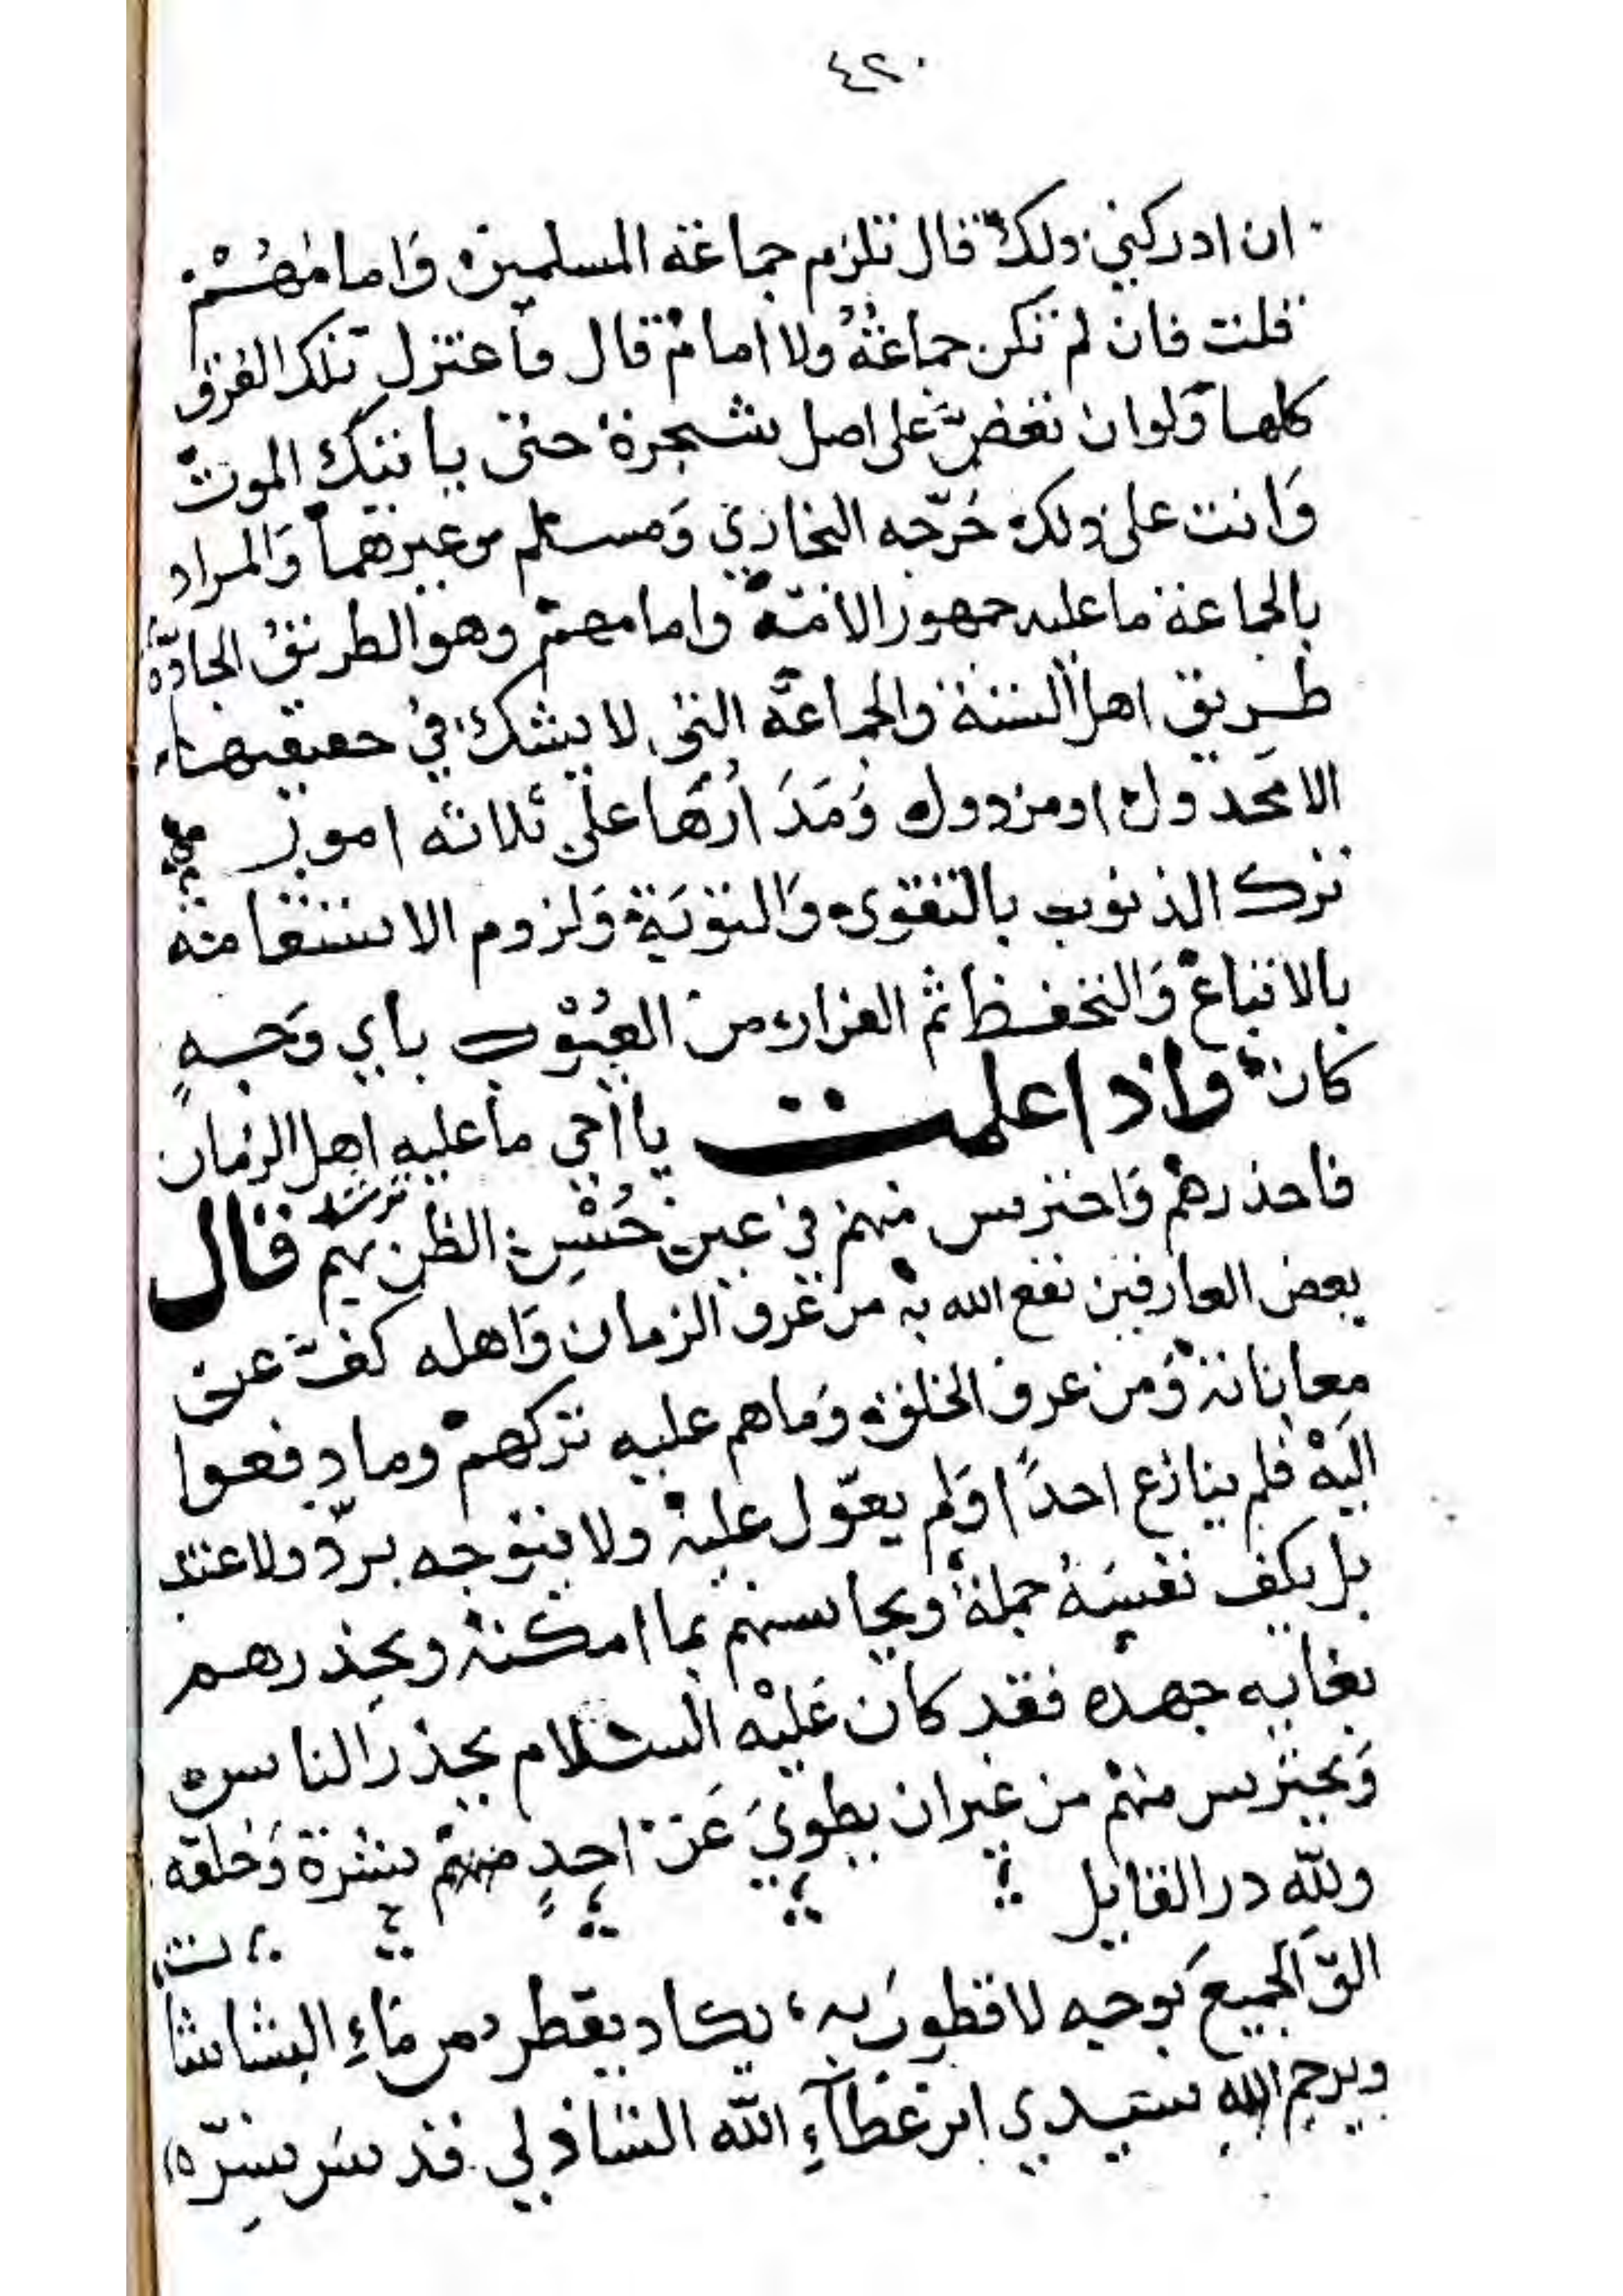 ٤٢٠
ان ادركني ذلك قال تلزم جماعة المسلمين وَامامهُمْ
قلت فان لم تكن جماعةُ ولا امام قال فاعتزل تلك الفرق
كلها وَلوان تعضَّ على اصل شجرة حتى ياتيك الموت
وَانت على ذلك خَرّجه البخاري وَمسلم وغيرهما وَالمراد
بالجماعة ما عليه جمهور الامّة وامامهم وهو الطريقُ الجادّة
طريق اهل السنة والجماعة التي لا يشك في حقيقتها
الا مخذول او مردود وَمَدَارُهَا على ثلاثه امور
ترك الذنوب بالتقوى وَالتوبَة وَلزوم الاستقامة
بالاتباع وَالتحفظ ثم الفرار من العُيُوب باي وَجهٍ
كان واذا علمت يا اخي ما عليه اهل الزمان
فاحذرهم وَاحترس منهم في عين حُسْنِ الظن بهم ترشد قال
بعض العارفين نفع الله به من عَرف الزمان وَاهله كفَّ عن
معاناته وَمن عرف الخلق وَما هم عليه تركهم وما دفعوا
اليَهْ فلم ينازع احدًا وَلم يعوّل عليه ولا يتوجه بردّ ولا عند
بل يكف نفسَهُ جملةً ويجانسهم بما امكنه ويحذرهم
بغايه جهده فقد كان عَليْه السلام يحذر الناس
وَيحترس منهم من غير ان يطويَ عَن احدٍ منهم بشرَة وَخلقه
ولله در القايل
القَ الجميعَ بوجه لا قطوب به يكاد يقطر من مَاءِ البشاشات
ويرحم الله سيدي ابن عَطآءِ الله الشاذلي قدسَ سرّه